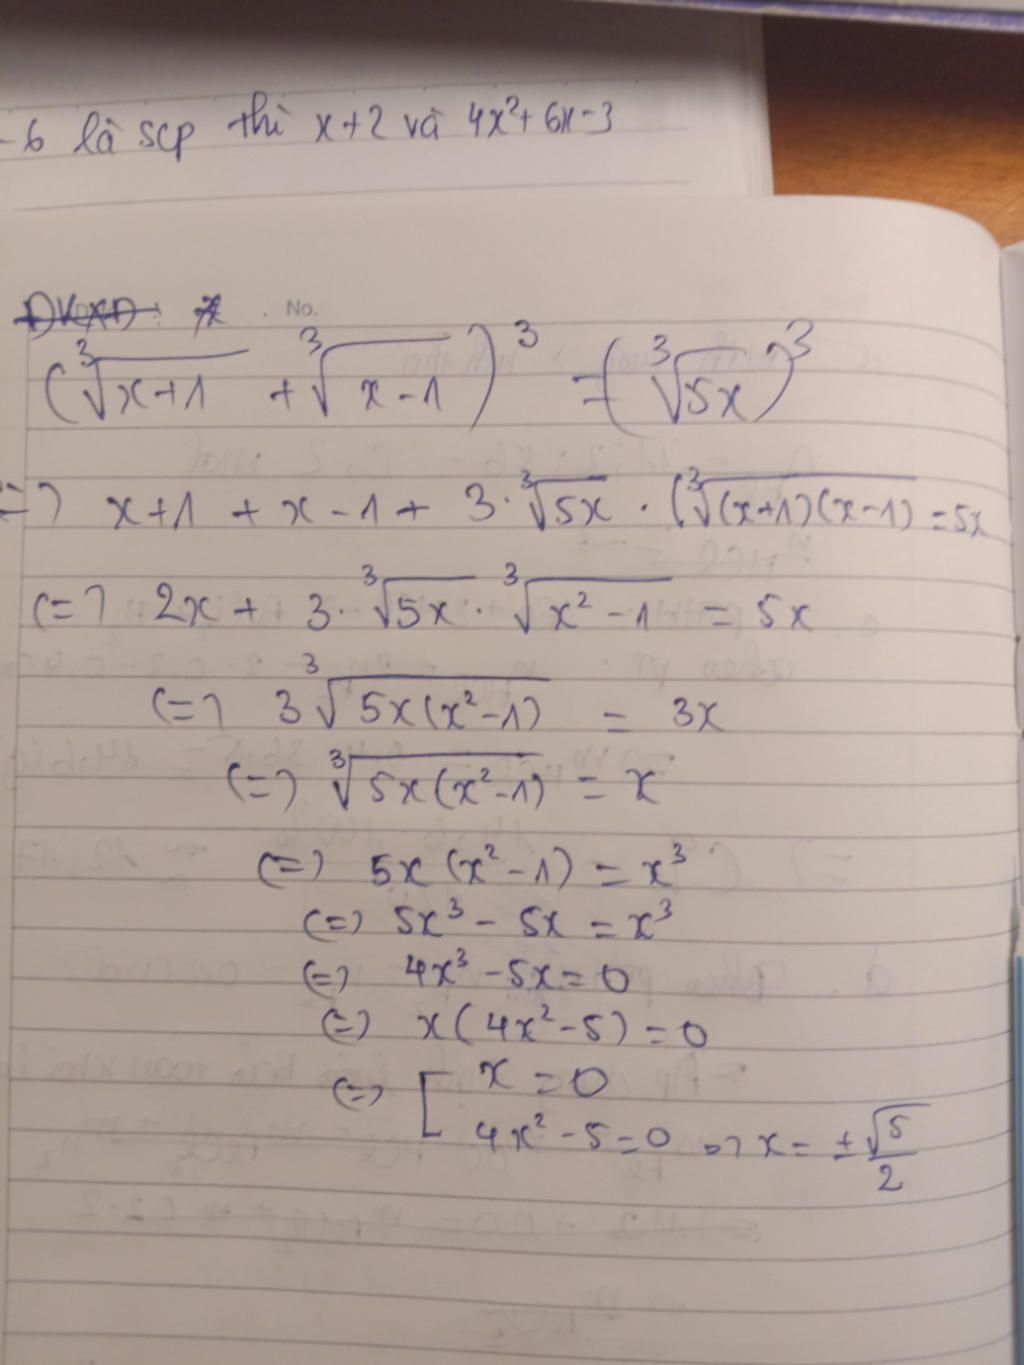 -6 là scp thì x+2 và 4x²+6x-3
ĐKXĐ: x
No.
(∛(x+1) + ∛(x-1))³ = (∛(5x))³
(=) x+1 + x-1 + 3.∛(5x) . (∛((x+1)(x-1)) = 5x
(=) 2x + 3.∛(5x) . ∛(x²-1) = 5x
(=) 3∛(5x(x²-1)) = 3x
(=) ∛(5x(x²-1)) = x
(=) 5x(x²-1) = x³
(=) 5x³ - 5x = x³
(=) 4x³ - 5x = 0
(=) x(4x²-5) = 0
(=) [ x = 0
4x² - 5 = 0 => x = ± √5/2